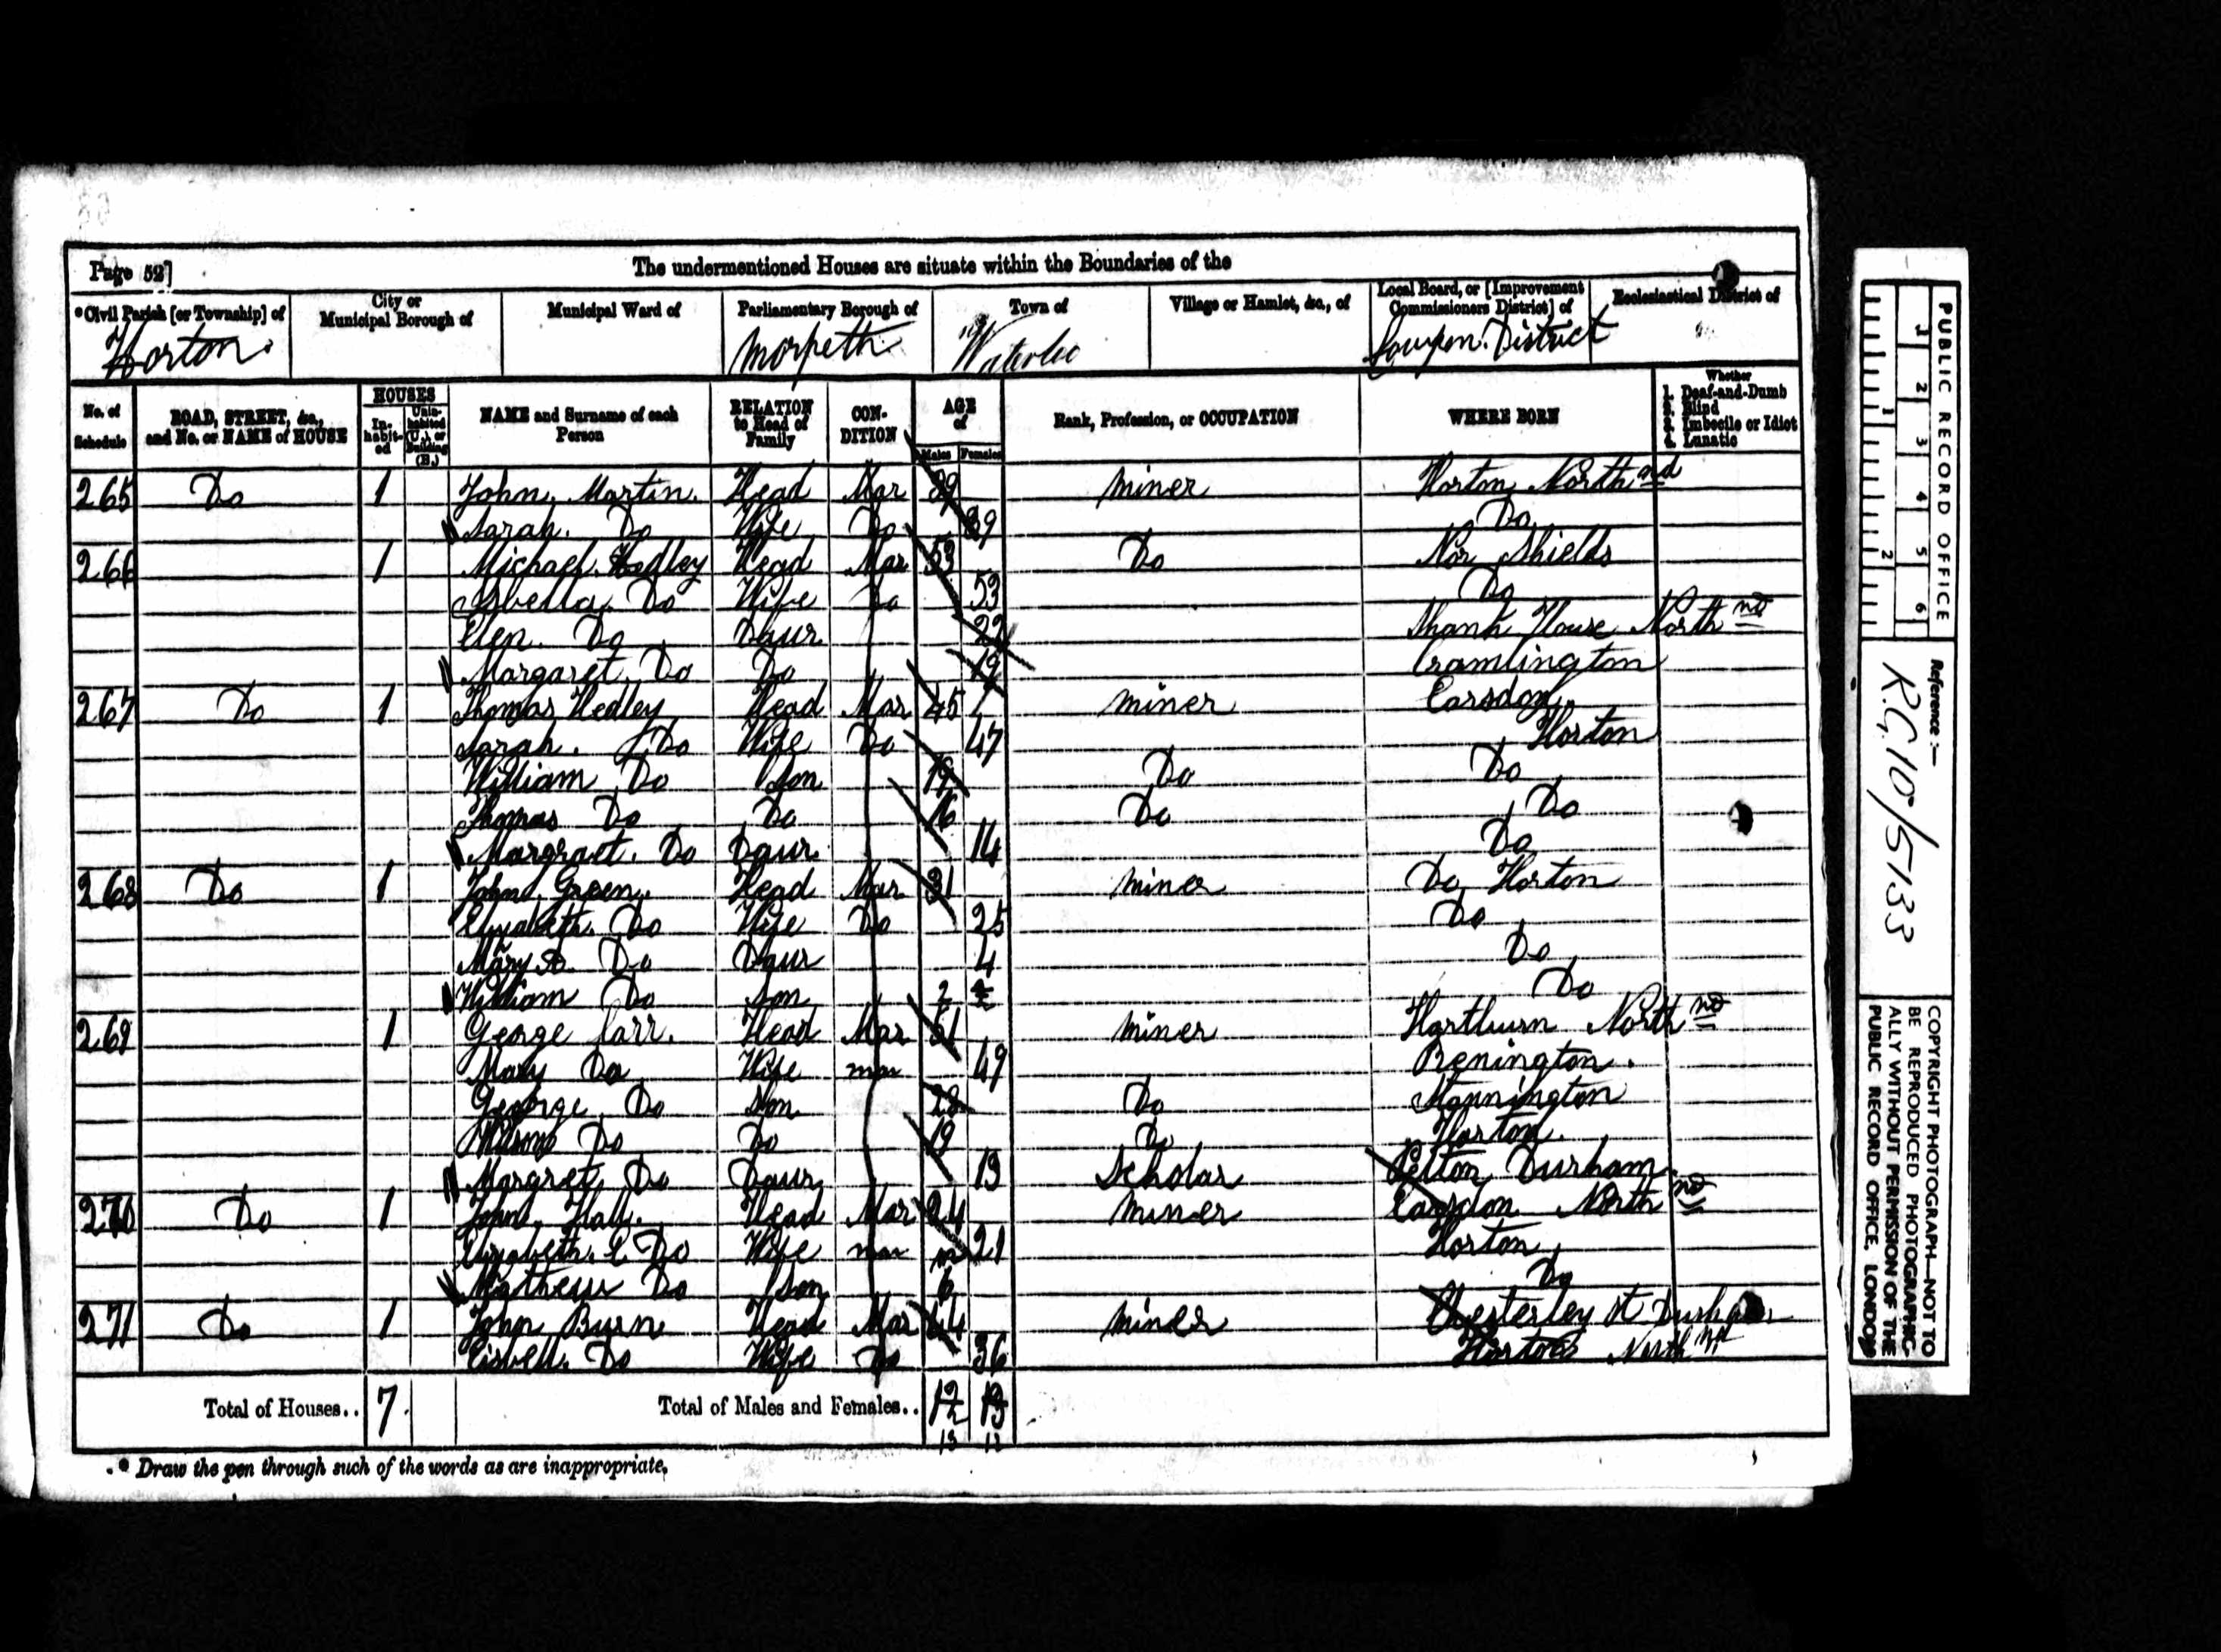 Page 52]
The undermentioned Houses are situate within the Boundaries of the
*Civil Parish [or Township] of
City or Municipal Borough of
Municipal Ward of
Parliamentary Borough of
Town of
Village or Hamlet, &c., of
Local Board, or [Improvement Commissioners District] of
Ecclesiastical District of
Horton
Morpeth
Waterloo
Cowpen District
No. of Schedule
ROAD, STREET, &c., and No. or NAME of HOUSE
HOUSES
In-habit-ed
Unin-habited (U.), or Building (B.)
NAME and Surname of each Person
RELATION to Head of Family
CON-DITION
AGE of
Males Females
Rank, Profession, or OCCUPATION
WHERE BORN
Whether
1. Deaf-and-Dumb
2. Blind
3. Imbecile or Idiot
4. Lunatic
265 Do 1 John Martin. Head Mar 39 miner Horton North nd
Sarah. Do Wife Do 39 Do
266 1 Michael Hedley Head Mar 53 Do Nor Shields
Isbella. Do Wife Do 53 Do
Elen. Do Daur 22 Shank House North nd
Margaret. Do Do 19 Cramlington
267 Do 1 Thomas Hedley Head Mar 45 miner Earsdon
Sarah. Do Wife Do 47 Horton
William Do Son 19 Do Do
Thomas Do Do 16 Do Do
Margraet. Do Daur 14 Do
268 Do 1 John Green. Head Mar 31 miner Do Horton
Elizabeth. Do Wife Do 25 Do
Mary A. Do Daur 4 Do
William Do Son 2 Do
269 1 George Carr. Head Mar 51 miner Hartburn North nd
Mary Do Wife mar 49 Renington.
George. Do Son 28 Do Stannington
Do Do 19 Do Horton.
Margret Do Daur 13 Scholar Pelton Durham
270 Do 1 John. Hall. Head Mar 24 miner Earsdon North nd
Elizabeth. E. Do Wife mar 21 Horton
Mathew Do Son m 6 Do
271 Do 1 John Burn Head Mar 44 miner Chesterley St. Durham
Do Wife Do 36 Horton North nd
Total of Houses.. 7
Total of Males and Females.. 12 13
13 12
* Draw the pen through such of the words as are inappropriate.
PUBLIC RECORD OFFICE
1 2 3 4 5 6
1 2
Reference:—
R.G. 10/5133
COPYRIGHT PHOTOGRAPH—NOT TO BE REPRODUCED PHOTOGRAPHICALLY WITHOUT PERMISSION OF THE PUBLIC RECORD OFFICE, LONDON